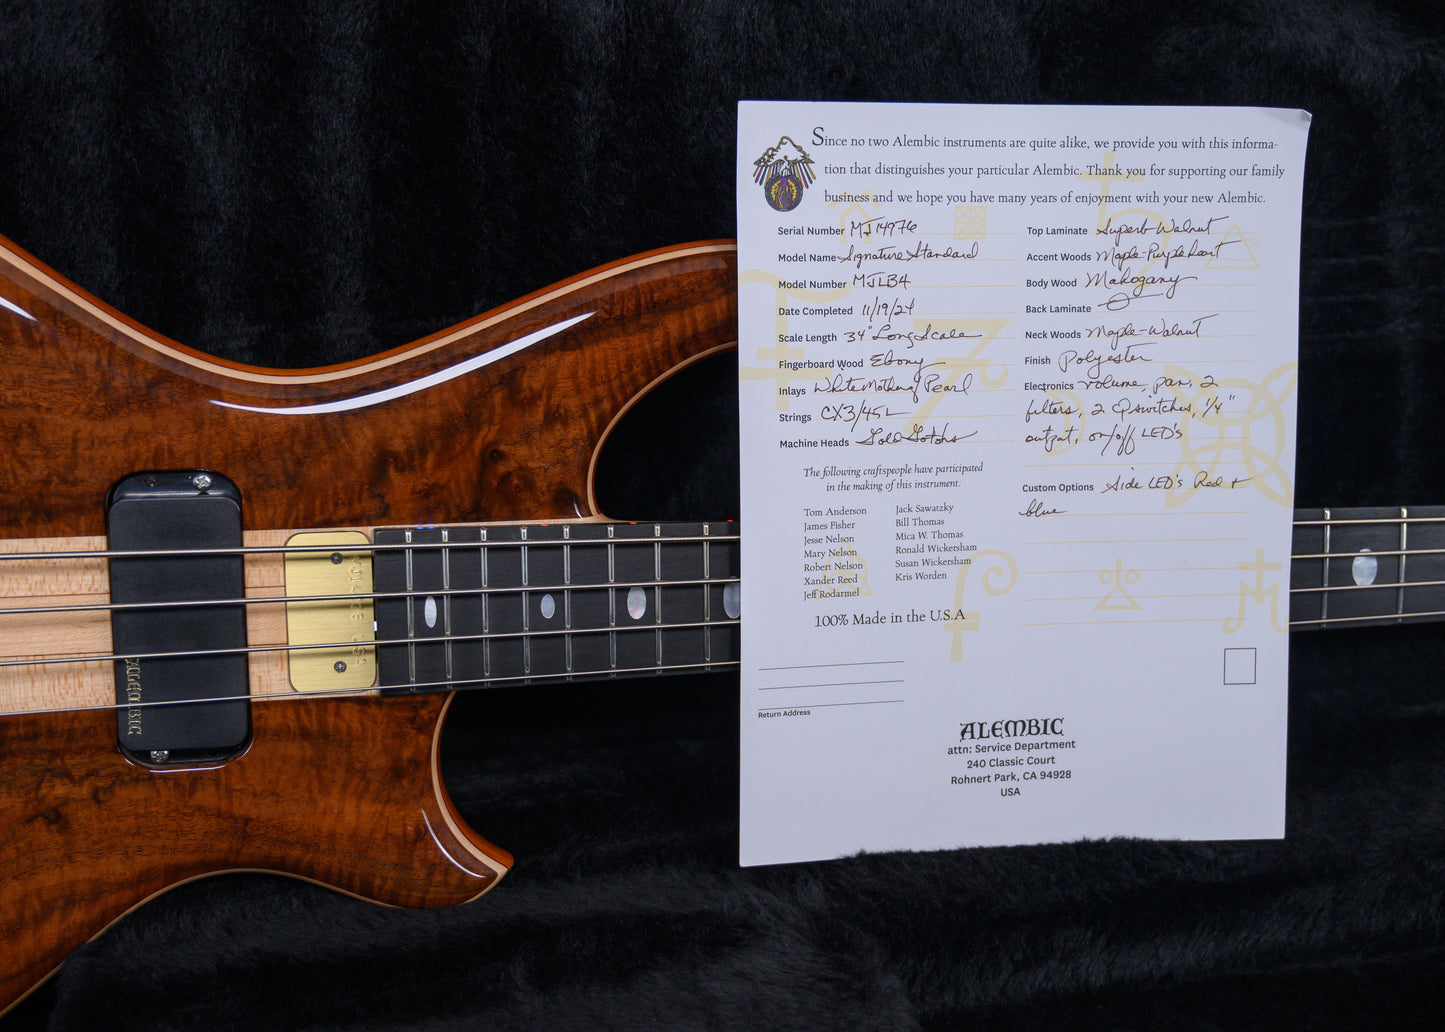 Since no two Alembic instruments are quite alike, we provide you with this informa-
tion that distinguishes your particular Alembic. Thank you for supporting our family
business and we hope you have many years of enjoyment with your new Alembic.
Serial Number MJ14976
Model Name Signature Standard
Model Number MJLB4
Date Completed 11/19/24
Scale Length 34" Long Scale
Fingerboard Wood Ebony
Inlays White Mother of Pearl
Strings CX3/45L
Machine Heads Gold Gotohs
Top Laminate Superb Walnut
Accent Woods Maple-Purpleheart
Body Wood Mahogany
Back Laminate
Neck Woods Maple-Walnut
Finish Polyester
Electronics volume, pan, 2
filters, 2 Q switches, 1/4"
output, on/off LED's
Custom Options Side LED's Red +
blue
The following craftspeople have participated
in the making of this instrument:
Tom Anderson
James Fisher
Jesse Nelson
Mary Nelson
Robert Nelson
Xander Reed
Jeff Rodarmel
Jack Sawatzky
Bill Thomas
Mica W. Thomas
Ronald Wickersham
Susan Wickersham
Kris Worden
100% Made in the U.S.A
Return Address
ALEMBIC
attn: Service Department
240 Classic Court
Rohnert Park, CA 94928
USA
ALEMBIC